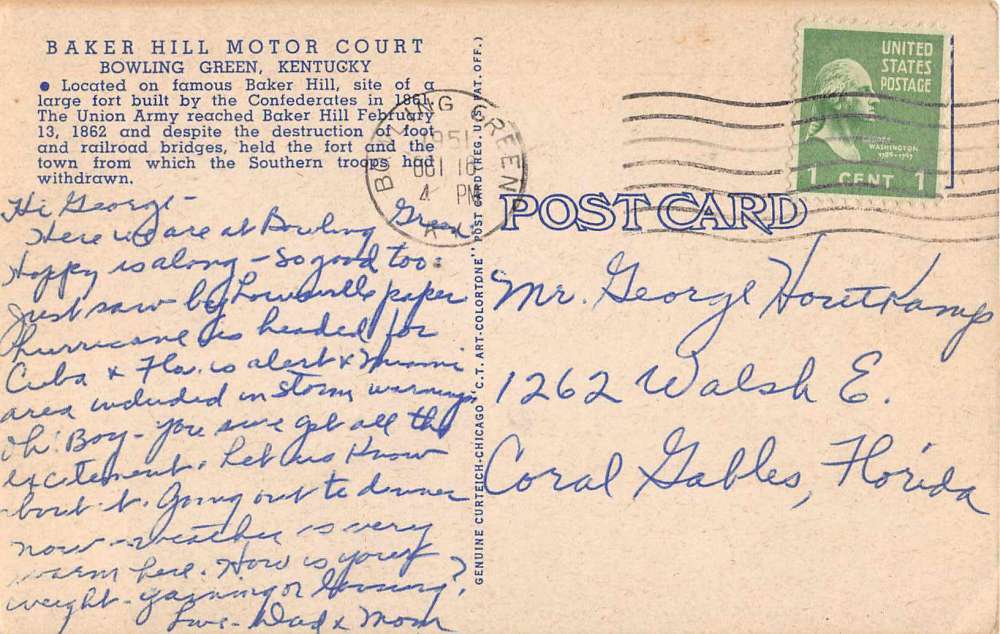 BAKER HILL MOTOR COURT
BOWLING GREEN, KENTUCKY
● Located on famous Baker Hill, site of a
large fort built by the Confederates in 1861.
The Union Army reached Baker Hill February
13, 1862 and despite the destruction of foot
and railroad bridges, held the fort and the
town from which the Southern troops had
withdrawn.
Hi George -
Here we are at Bowling Green
Happy is along - so good too.
Just saw by Louisville paper
hurricane is headed for
Cuba & Fla. is alert & Miami
area included in storm warnings
Oh! Boy - you sure get all the
excitement. Let us know
bout it. Going out to dinner
now - weather is very
warm here. How is your
weight - gaining or loosing?
Love - Dad & Mom
GENUINE CURTEICH-CHICAGO "C. T. ART-COLORTONE" POST CARD (REG. U.S. PAT. OFF.)
BOWLING GREEN
1951
OCT 16
4 PM
KY
UNITED
STATES
POSTAGE
WASHINGTON
1789-1797
1 CENT 1
POST CARD
Mr. George Houtkamp
1262 Walsh E.
Coral Gables, Florida